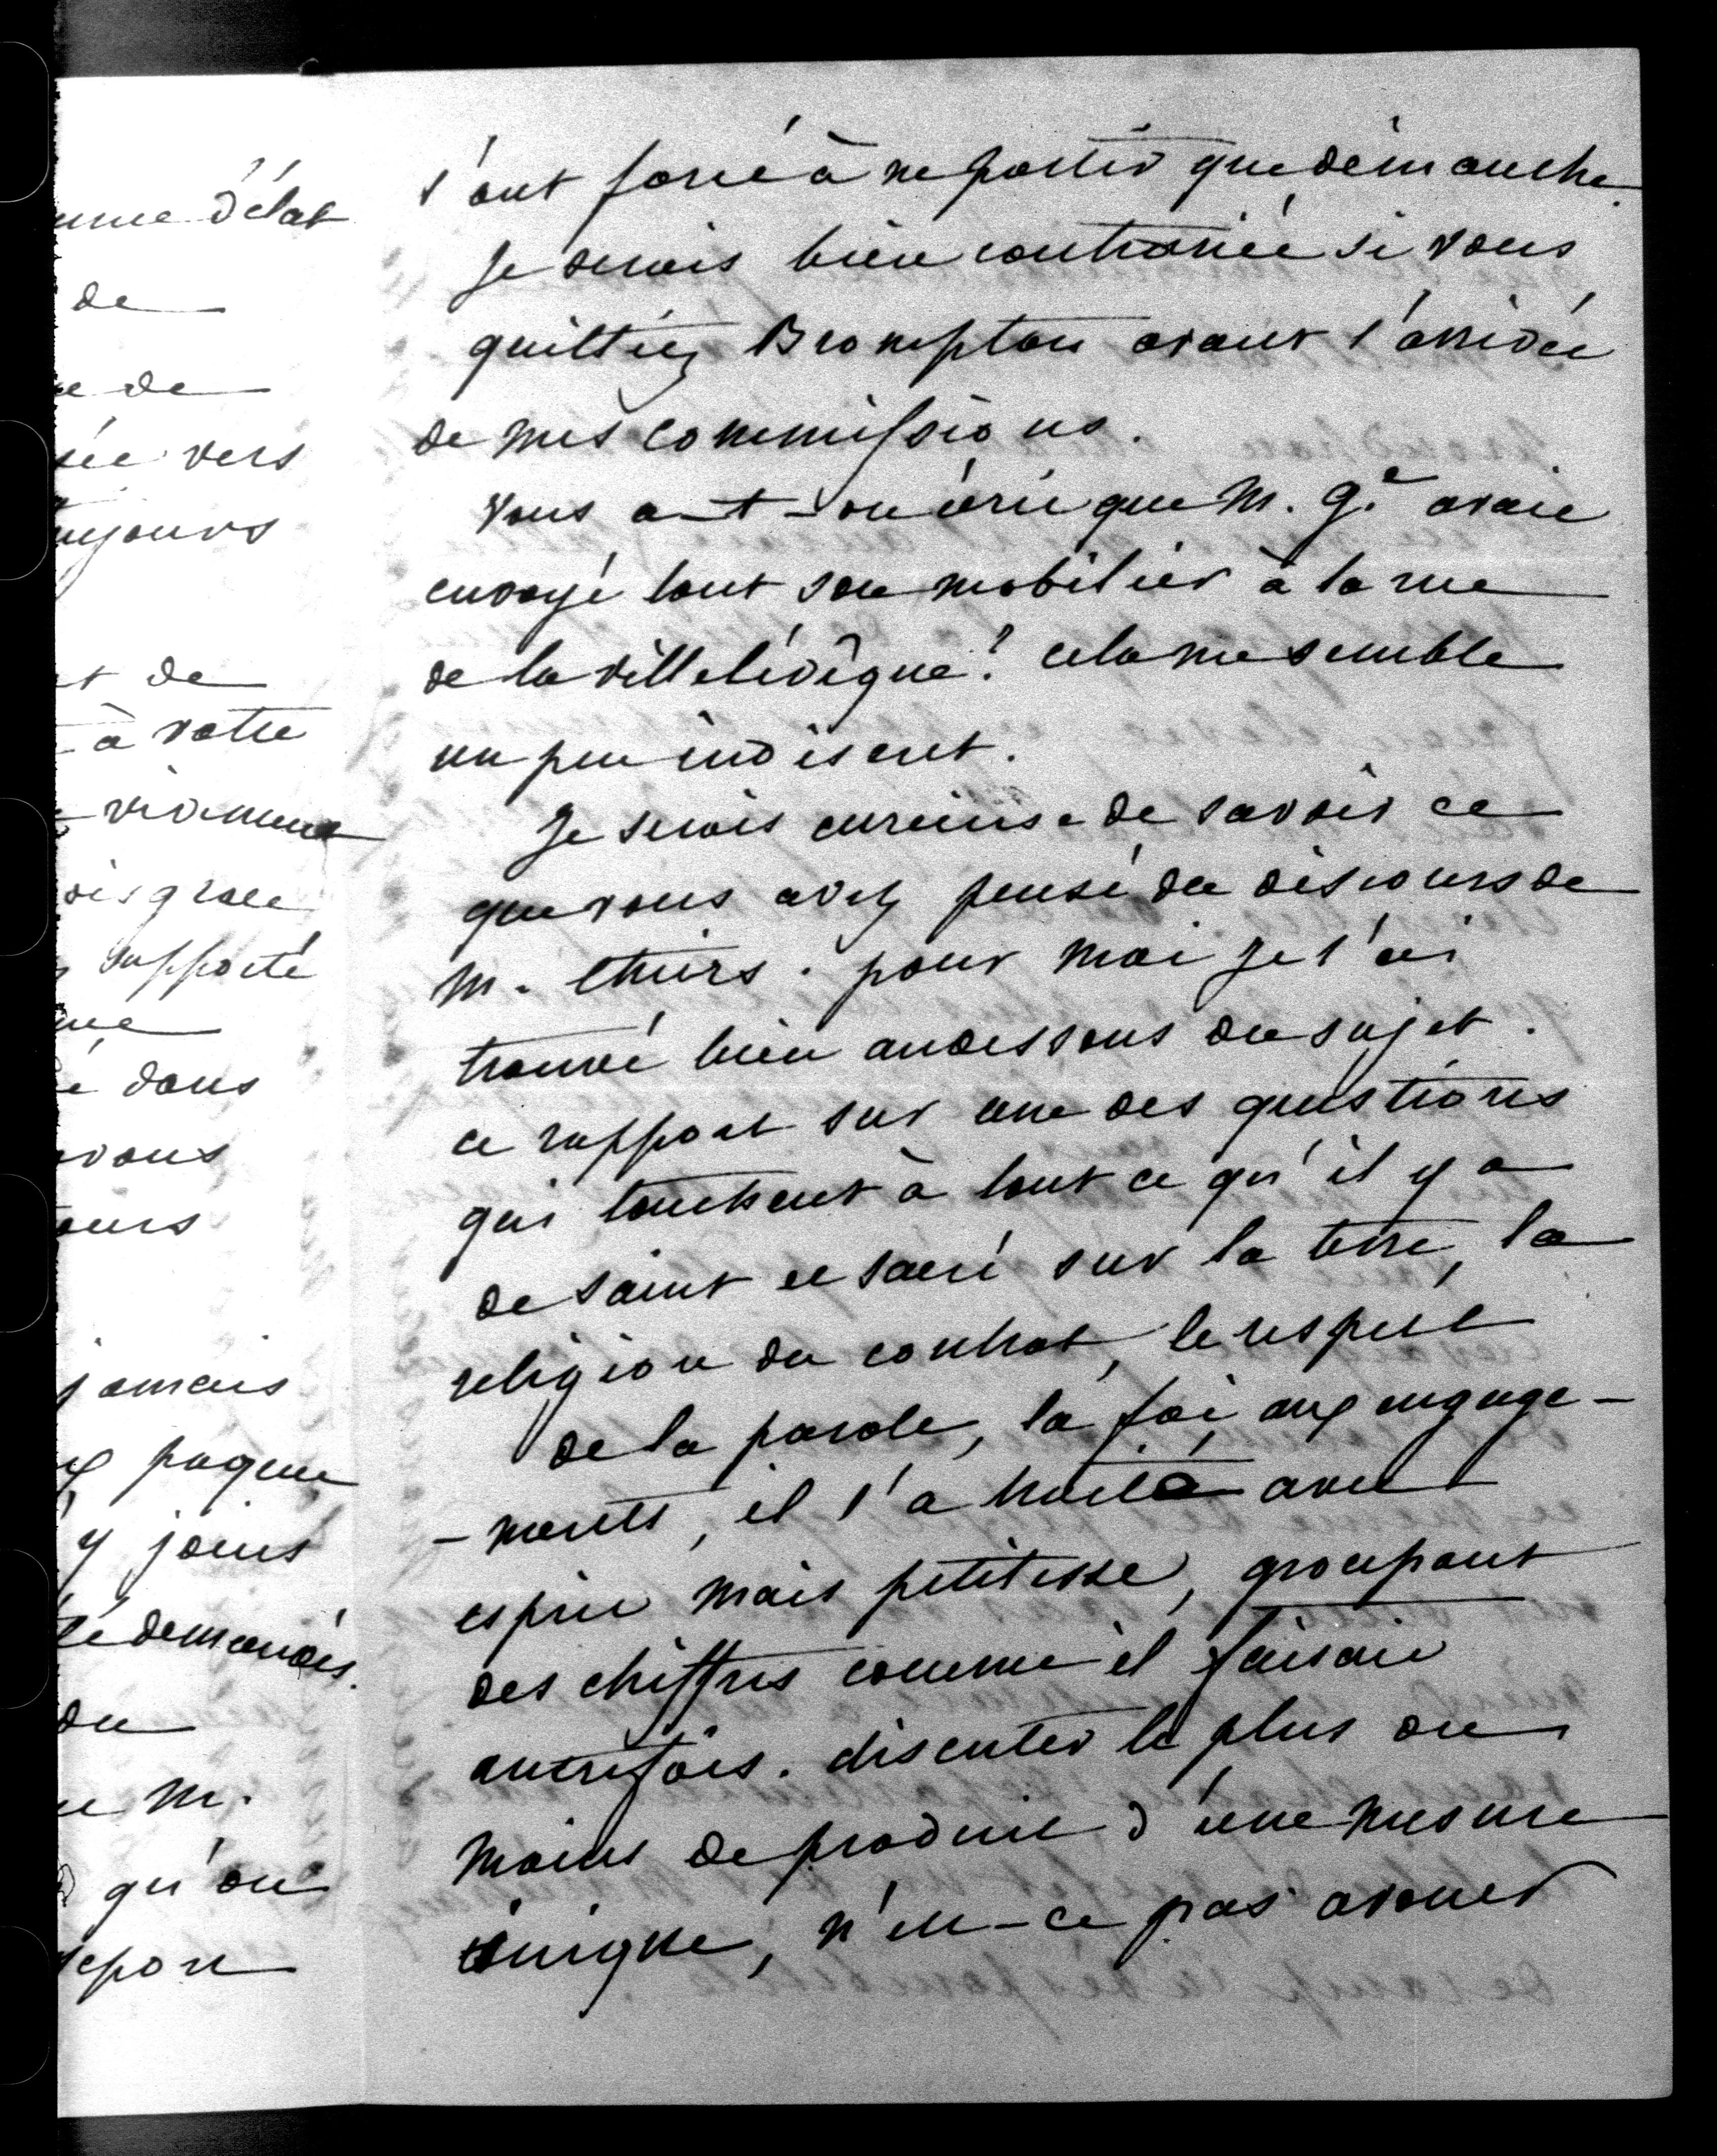 l'ont forcé à ne partir que dimanche.
Je serais bien contrariée si vous
quittiez Brompton avant l'arrivée
de mes commissions.
Vous a-t-on écrit que M. G.e avait
envoyé tout son mobilier à la rue
de la ville l'évêque? cela me semble
un peu indiscret.
Je serais curieuse de savoir ce
que vous avez pensé du discours de
M. thiers. pour moi je l'ai
trouvé bien audessous du sujet.
ce rapport sur une des questions
qui touchent à tout ce qu'il y a
de saint et sacré sur la terre, la
religion du contrat, le respect
de la parole, la foi aux engage-
-ments, il l'a traité avec
esprit mais petitesse, groupant
des chiffres comme il faisait
autrefois. discuter le plus ou
moins de produit d'une mesure
inique, n'est-ce pas avouer
d'état
de
de
vers
de
à votre
disgrace
supporté
dans
vous
jamais
y joins
demandés.
du
M.
qu'on